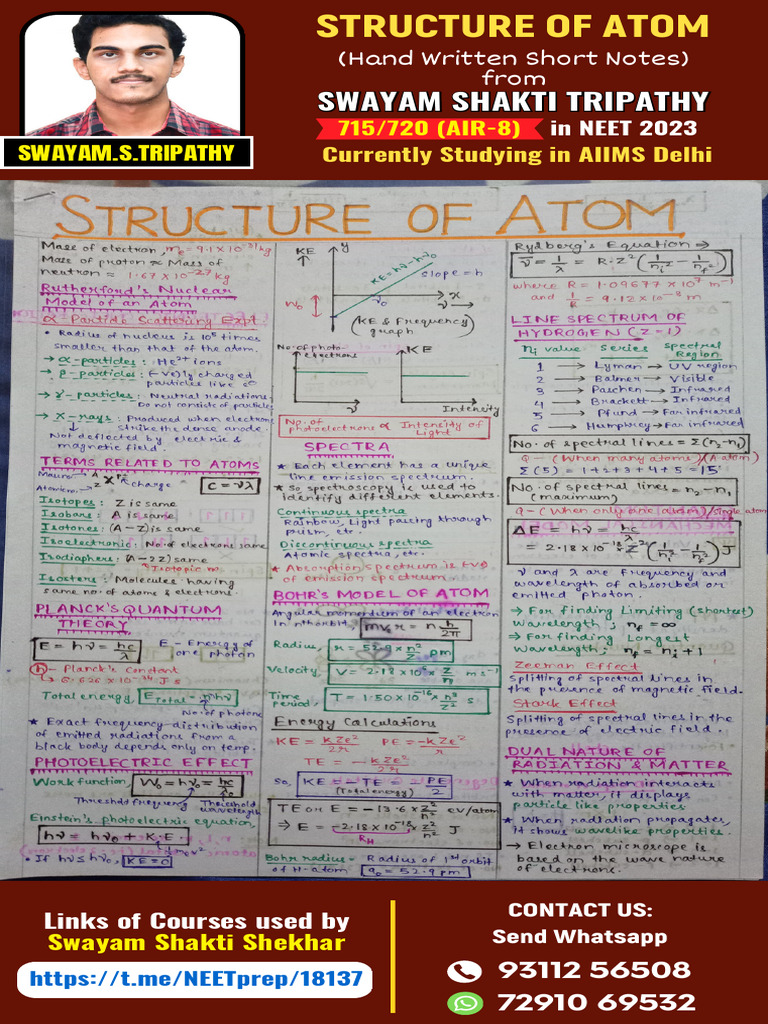 STRUCTURE OF ATOM
(Hand Written Short Notes)
from
SWAYAM SHAKTI TRIPATHY
715/720 (AIR-8) in NEET 2023
Currently Studying in AIIMS Delhi
SWAYAM.S.TRIPATHY
STRUCTURE OF ATOM
Mass of electron, me = 9.1 × 10⁻³¹ kg
Mass of proton ≈ Mass of
neutron ≈ 1.67 × 10⁻²⁷ kg
Rutherford's Nuclear
Model of an Atom
α-Particle Scattering Expt
• Radius of nucleus is 10⁵ times
smaller than that of the atom.
→ α-particles: He²⁺ ions
→ β-particles: (-ve)ly charged
particles like e⊖
→ γ-particles: Neutral radiations
Do not consist of particles
→ X-rays: Produced when electrons
strike the dense anode.
Not deflected by electric &
magnetic field.
TERMS RELATED TO ATOMS
charge
c = νλ
Isotopes: Z is same
Isobars: A is same
Isotones: (A-Z) is same
Isoelectronic: No. of electrons same
Isodiaphers: (A-2Z) same
Isotopic no.
Isosters: Molecules having
same no. of atoms & electrons.
PLANCK'S QUANTUM
THEORY
E = hν = hc/λ
E - Energy of
one photon
h - Planck's Constant
→ 6.626 × 10⁻³⁴ J s
Total energy, E Total = nhν
No. of photons
★ Exact frequency distribution
of emitted radiations from a
black body depends only on temp.
PHOTOELECTRIC EFFECT
Work function, W₀ = hν₀ = hc/λ₀
Threshold frequency Threshold
wavelength
Einstein's photoelectric equation,
hν = hν₀ + K.E.
• If hν ≤ hν₀, KE = 0
KE
y
KE = hν - hν₀
slope = h
W₀
ν₀
x
ν
(KE & Frequency
graph)
No. of photo-
electrons
KE
ν
Intensity
No. of
photoelectrons ∝ Intensity of
Light
SPECTRA
★ Each element has a unique
line emission spectrum.
★ So spectroscopy is used to
identify different elements.
Continuous spectra
Rainbow, Light passing through
prism, etc.
Discontinuous spectra
Atomic spectra, etc.
★ Absorption spectrum is (-ve)
of emission spectrum
BOHR'S MODEL OF ATOM
Angular momentum of an electron
in nth orbit, mvr = n h/2π
Radius, r = 52.9 n²/Z pm
Velocity, V = 2.18 × 10⁶ × Z/n m s⁻¹
Time
period, T = 1.50 × 10⁻¹⁶ × n³/Z² s
Energy Calculations
KE = kZe²/2r PE = -kZe²/r
TE = -kZe²/2r
So, KE = -TE = -PE/2
(Total energy)
TE or E = -13.6 × Z²/n² eV/atom
→ E = -2.18 × 10⁻¹⁸ × Z²/n² J
RH
Bohr radius - Radius of 1st orbit
of H-atom a₀ = 52.9 pm
Rydberg's Equation →
ν̄ = 1/λ = R·Z² (1/ni² - 1/nf²)
where R = 1.09677 × 10⁷ m⁻¹
and 1/R = 9.12 × 10⁻⁸ m
LINE SPECTRUM OF
HYDROGEN (Z=1)
ni value series spectral
Region
1 → Lyman → UV region
2 → Balmer → Visible
3 → Paschen → Infrared
4 → Brackett → Infrared
5 → Pfund → Far infrared
6 → Humphrey → Far infrared
No. of spectral lines = Σ(n₂-n₁)
Q - (When many atoms)
Σ(5) = 1+2+3+4+5 = 15
No. of spectral lines = n₂-n₁
(maximum)
Q - (When only one (atom)/single atom
ΔE = hν = hc/λ
= 2.18 × 10⁻¹⁸ Z² (1/n₁² - 1/n₂²) J
ν and λ are frequency and
wavelength of absorbed or
emitted photon.
→ For finding Limiting (shortest)
wavelength; nf = ∞
→ For finding Longest
wavelength; nf = ni + 1
Zeeman Effect
Splitting of spectral lines in
the presence of magnetic field.
Stark Effect
Splitting of spectral lines in the
presence of electric field.
DUAL NATURE OF
RADIATION & MATTER
★ When radiation interacts
with matter, it displays
particle like properties
★ When radiation propagates,
it shows wavelike properties.
→ Electron microscope is
based on the wave nature
of electrons.
Links of Courses used by
Swayam Shakti Shekhar
https://t.me/NEETprep/18137
CONTACT US:
Send Whatsapp
93112 56508
72910 69532